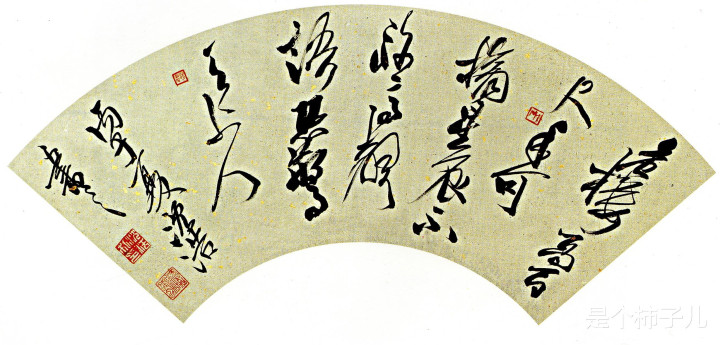 危樓高百
尺手可
摘星辰不
敢高聲
語恐驚
天上人
午夏
書
是个柿子儿